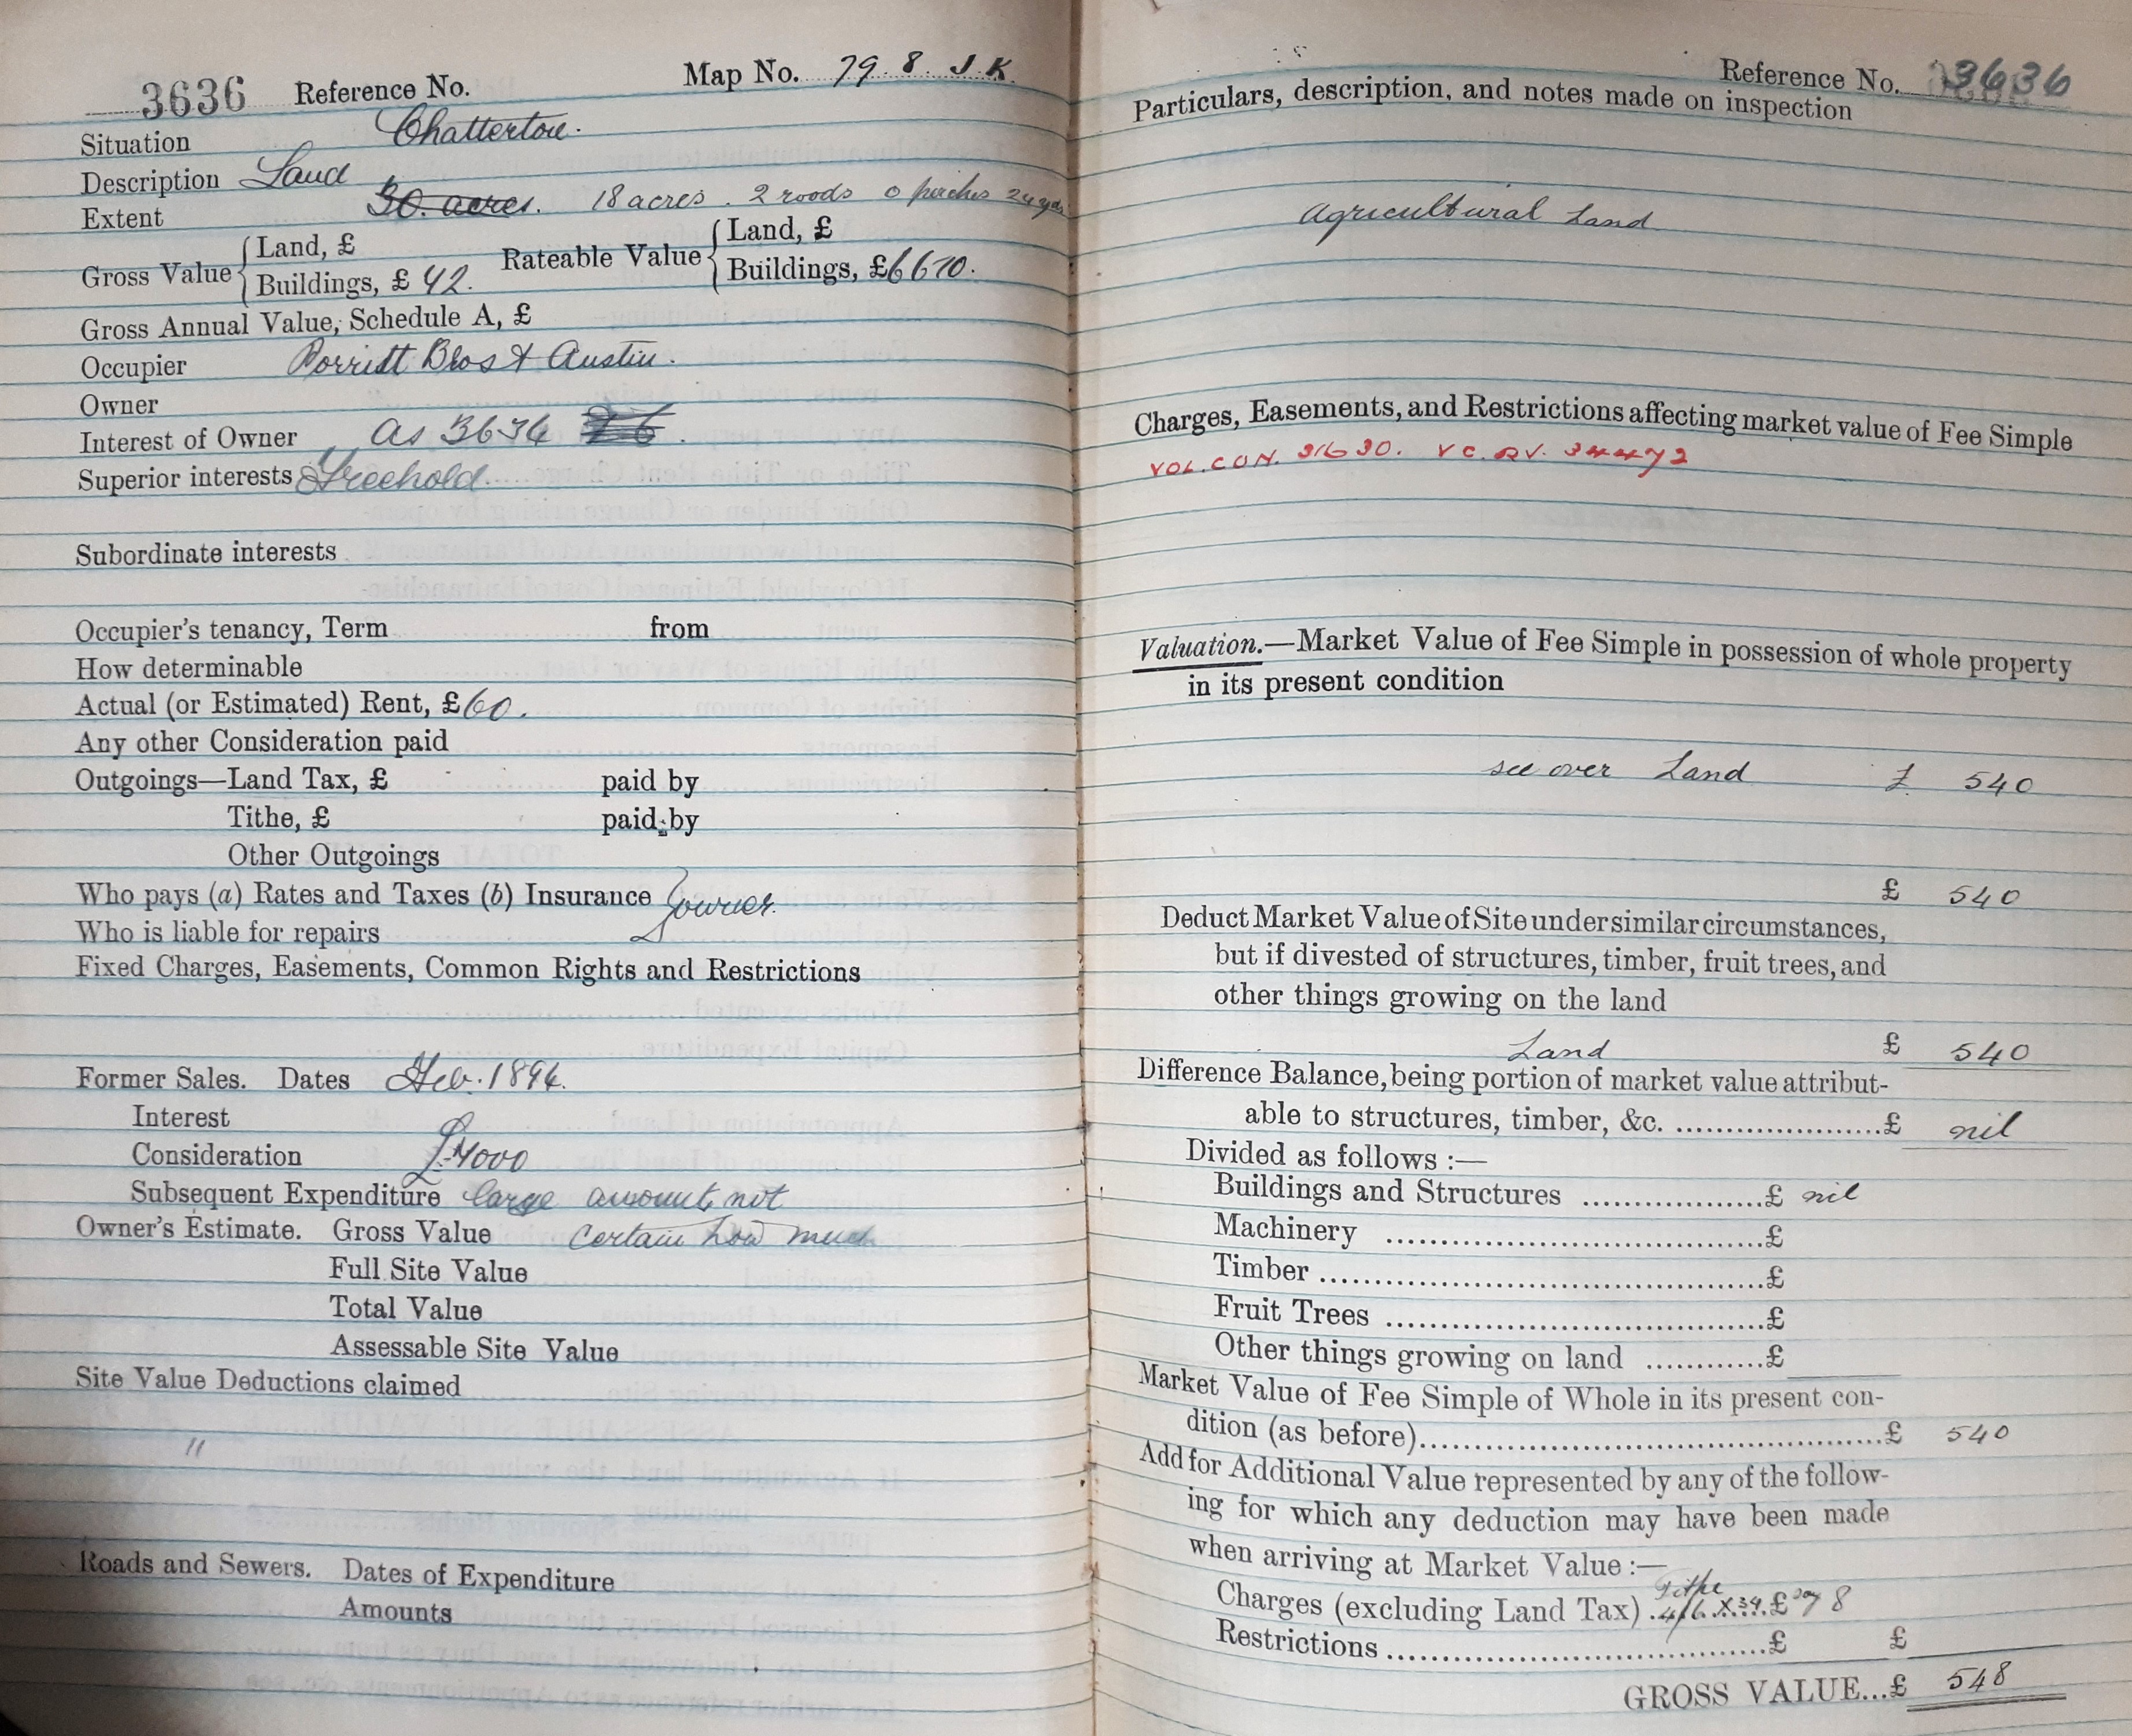 3636 Reference No. Map No. 79. 8. J.K.
Situation Chatterton.
Description Land
Extent 30. acres. 18 acres. 2 roods 0 perches 24 yds
Gross Value { Land, £ Rateable Value { Land, £
Buildings, £ 42. Buildings, £
Gross Annual Value, Schedule A, £
Occupier Porritt Bros & Austin.
Owner
Interest of Owner as 3634
Superior interests Freehold
Subordinate interests
Occupier's tenancy, Term from
How determinable
Actual (or Estimated) Rent, £60.
Any other Consideration paid
Outgoings—Land Tax, £ paid by
Tithe, £ paid by
Other Outgoings
Who pays (a) Rates and Taxes (b) Insurance } owner.
Who is liable for repairs
Fixed Charges, Easements, Common Rights and Restrictions
Former Sales. Dates Feb. 1894.
Interest
Consideration £4000
Subsequent Expenditure large amount, not
Owner's Estimate. Gross Value certain how much
Full Site Value
Total Value
Assessable Site Value
Site Value Deductions claimed
"
Roads and Sewers. Dates of Expenditure
Amounts
Reference No. 3636
Particulars, description, and notes made on inspection
Agricultural Land
Charges, Easements, and Restrictions affecting market value of Fee Simple
VOL. CON. 31630. VC. RV. 34472
Valuation.—Market Value of Fee Simple in possession of whole property
in its present condition
see over Land £ 540
£ 540
Deduct Market Value of Site under similar circumstances,
but if divested of structures, timber, fruit trees, and
other things growing on the land
Land £ 540
Difference Balance, being portion of market value attribut-
able to structures, timber, &c. ....................£ nil
Divided as follows :—
Buildings and Structures ..................£ nil
Machinery .....................................£
Timber ...........................................£
Fruit Trees .....................................£
Other things growing on land ............£
Market Value of Fee Simple of Whole in its present con-
dition (as before)..............................................£ 540
Add for Additional Value represented by any of the follow-
ing for which any deduction may have been made
when arriving at Market Value :—
Tithe
Charges (excluding Land Tax) 4/6 x 39 £ say 8
Restrictions .....................................£ £
GROSS VALUE...£ 548